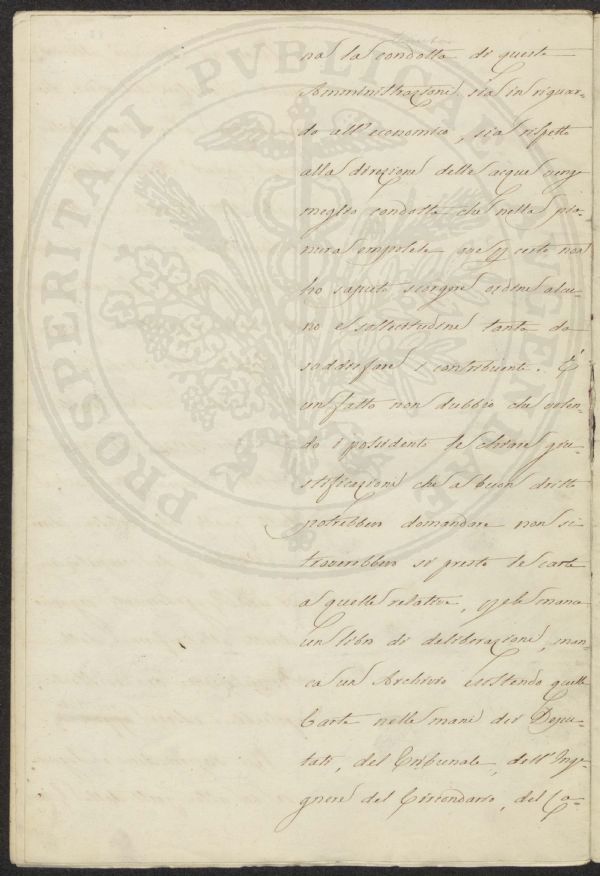 na la condotta di queste
Amministrazioni sia in riguar-
do all'economico, sia rispetto
alla direzione delle acque venga
meglio condotta che nella pia-
nura empolese ove p certo non
ho saputo scorgere ordine alcu-
no e sollecitudine tanta da
soddisfare i contribuenti. È
un fatto non dubbio che volen-
do i possidenti le chiare giu-
stificazioni che a buon dritto
potrebbero domandare non si
troverebbero sì presto le carte
a quelle relative, manca
un libro di deliberazioni, man-
ca un Archivio esistendo quelle
Carte nelle mani dei Depu-
tati, del Tribunale, dell'Inge-
gnere del Circondario, del Ca-
PROSPERITATI PVBLICAE AVGENDAE